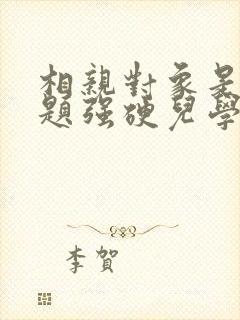 相親對象是
題強硬兒學
李賀